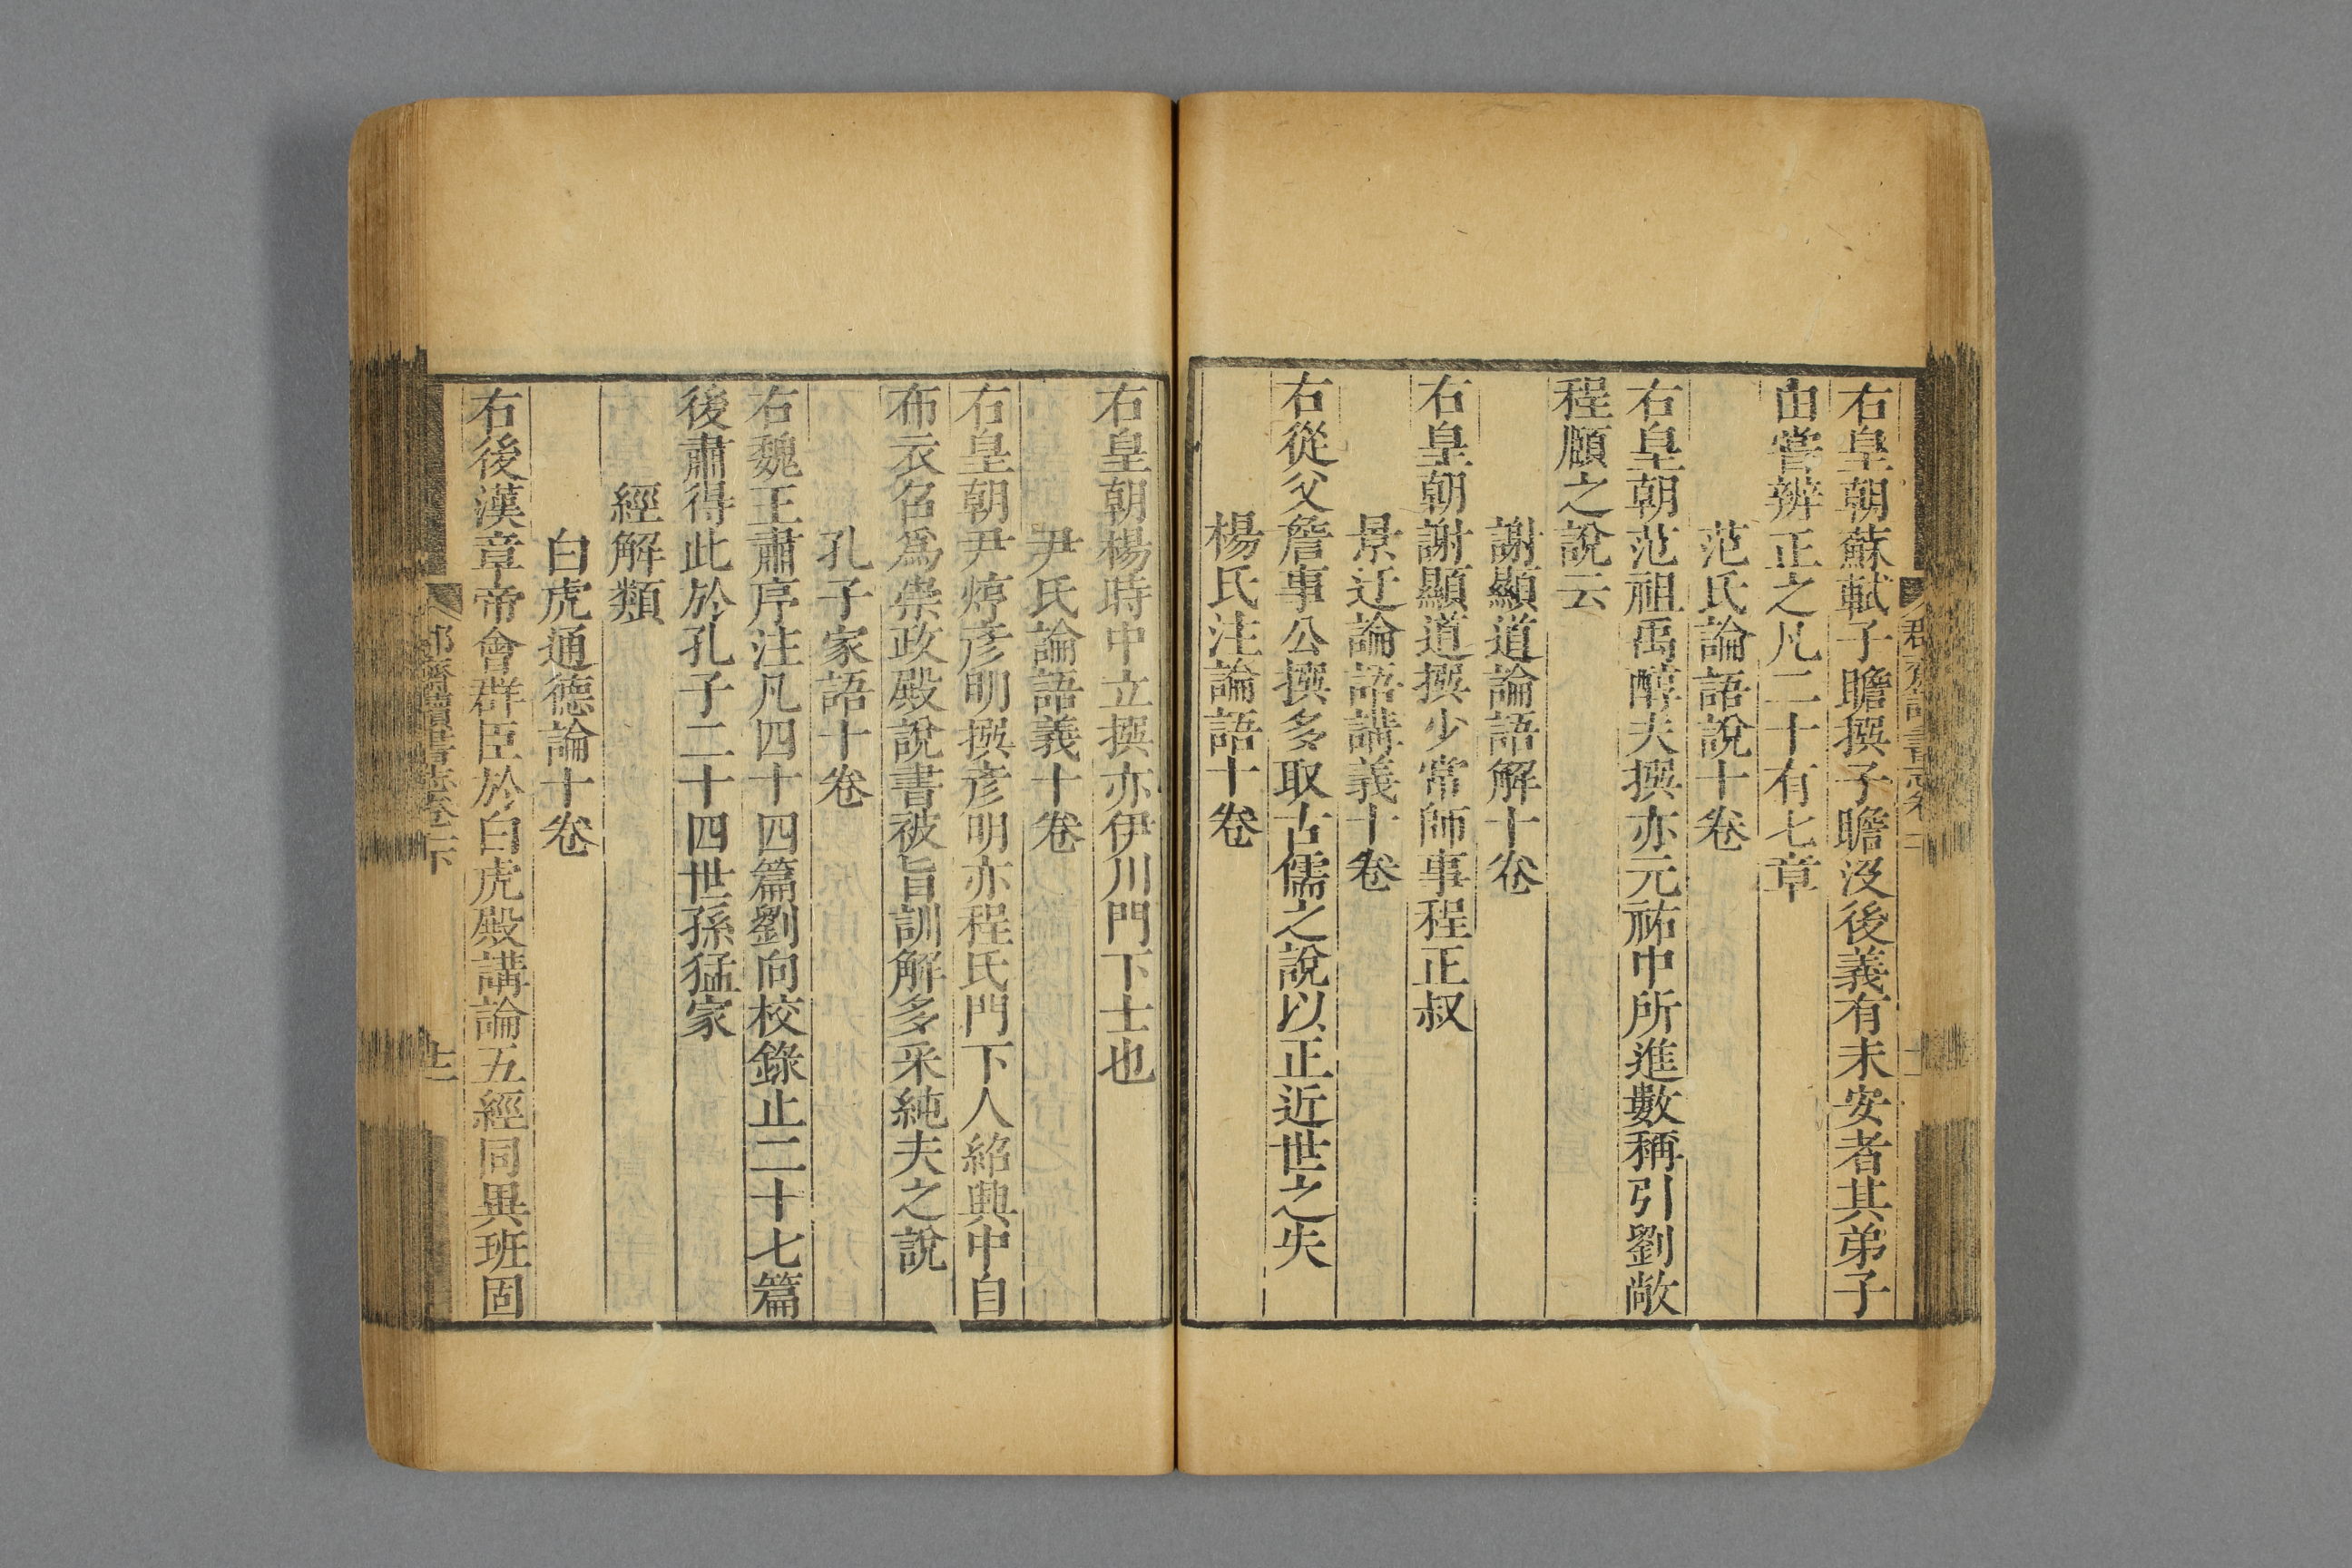 右皇朝蘇軾子瞻撰子瞻沒後義有未安者其弟子
由嘗辨正之凡二十有七章
范氏論語說十卷
右皇朝范祖禹醇夫撰亦元祐中所進數稱引劉敞
程頤之說云
謝顯道論語解十卷
右皇朝謝顯道撰少常師事程正叔
景迂論語講義十卷
右從父詹事公撰多取古儒之說以正近世之失
楊氏注論語十卷
右皇朝楊時中立撰亦伊川門下士也
尹氏論語義十卷
右皇朝尹焞彥明撰彥明亦程氏門下人紹興中自
布衣召爲崇政殿說書被旨訓解多采純夫之說
孔子家語十卷
右魏王肅序注凡四十四篇劉向校錄止二十七篇
後肅得此於孔子二十四世孫猛家
經解類
白虎通德論十卷
右後漢章帝會群臣於白虎殿講論五經同異班固
郡齋讀書志卷一下